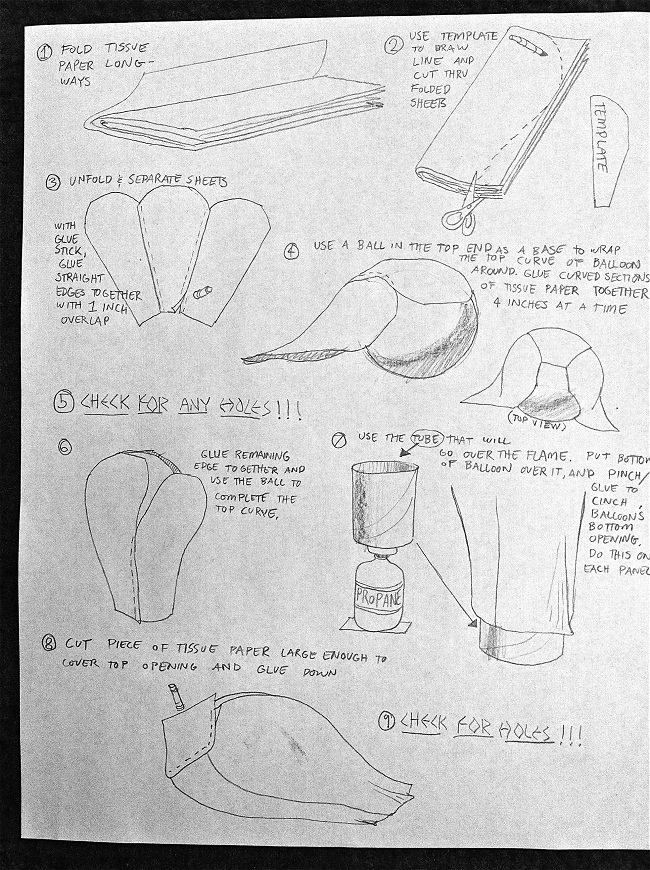 ① FOLD TISSUE
PAPER LONG-
WAYS
② USE TEMPLATE
TO DRAW
LINE AND
CUT THRU
FOLDED
SHEETS
TEMPLATE
③ UNFOLD & SEPARATE SHEETS
WITH
GLUE
STICK,
GLUE
STRAIGHT
EDGES TOGETHER
WITH 1 INCH
OVERLAP
④ USE A BALL IN THE TOP END AS A BASE TO WRAP
THE TOP CURVE OF BALLOON
AROUND. GLUE CURVED SECTIONS
OF TISSUE PAPER TOGETHER
4 INCHES AT A TIME
(TOP VIEW)
⑤ CHECK FOR ANY HOLES!!!
⑥
GLUE REMAINING
EDGE TOGETHER AND
USE THE BALL TO
COMPLETE THE
TOP CURVE.
⑦ USE THE TUBE THAT WILL
GO OVER THE FLAME. PUT BOTTOM
OF BALLOON OVER IT, AND PINCH/
GLUE TO
CINCH
BALLOON'S
BOTTOM
OPENING.
DO THIS ON
EACH PANEL
PROPANE
⑧ CUT PIECE OF TISSUE PAPER LARGE ENOUGH TO
COVER TOP OPENING AND GLUE DOWN
⑨ CHECK FOR HOLES!!!